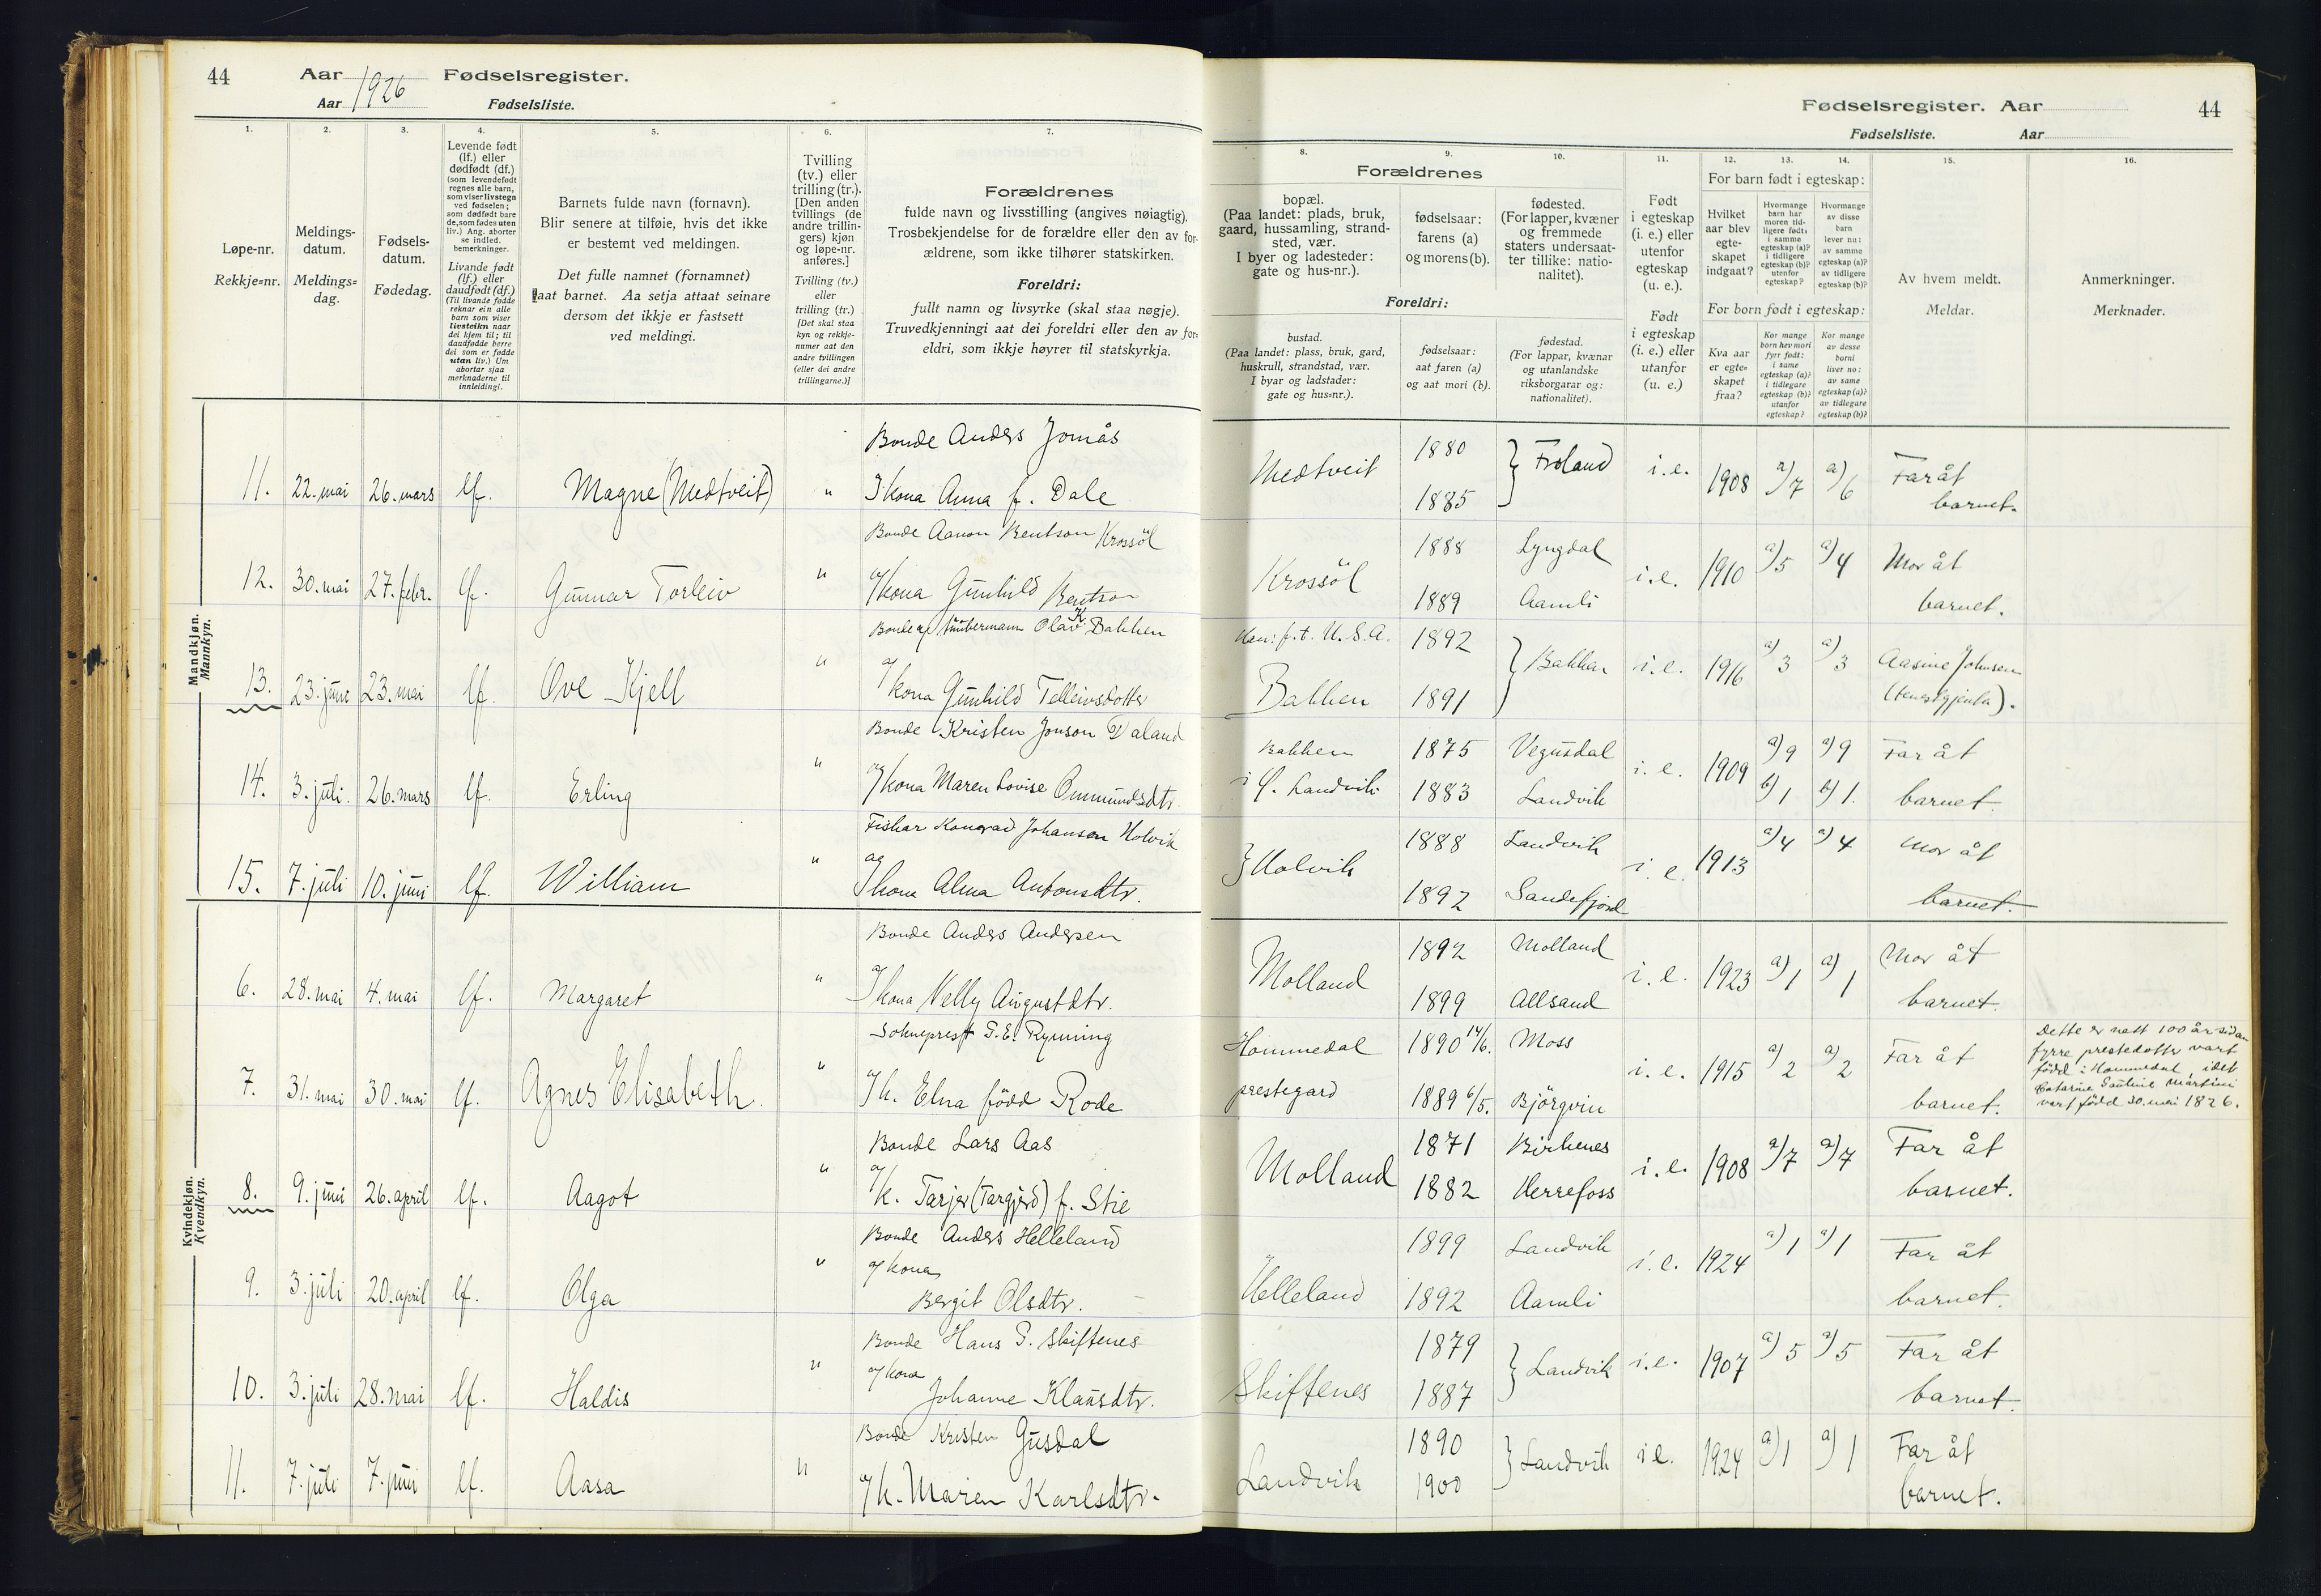 44
Aar 1926 Fødselsregister.
Aar Fødselsliste.
1.
2.
3.
4.
5.
6.
7.
Løpe-nr.
Rekkje=nr.
Meldings-
datum.
Meldings=
dag.
Fødsels-
datum.
Fødedag.
Levende født
(lf.) eller
dødfødt (df.)
(som levendefødt
regnes alle barn,
som viser livstegn
ved fødselen;
som dødfødt bare
de, som fødes uten
liv.) Ang. aborter
se indled.
bemerkninger.
Livande født
(lf.) eller
daudfødt (df.)
(Til livande fødde
reknar ein alle
born som viser
livsteikn naar
dei kjem til; til
daudfødde berre
dei som er fødde
utan liv.) Um
abortar sjaa
merknaderne til
innleidingi.
Barnets fulde navn (fornavn).
Blir senere at tilføie, hvis det ikke
er bestemt ved meldingen.
Det fulle namnet (fornamnet)
aat barnet. Aa setja attaat seinare
dersom det ikkje er fastsett
ved meldingi.
Tvilling
(tv.) eller
trilling (tr.).
[Den anden
tvillings (de
andre trillin-
gers) kjøn
og løpe-nr.
anføres.]
Tvilling (tv.)
eller
trilling (tr.)
[Det skal staa
kyn og rekkje-
numer aat den
andre tvillingen
(eller dei andre
trillingarne.)]
Forældrenes
fulde navn og livsstilling (angives nøiagtig).
Trosbekjendelse for de forældre eller den av for-
ældrene, som ikke tilhører statskirken.
Foreldri:
fullt namn og livsyrke (skal staa nøgje).
Truvedkjenningi aat dei foreldri eller den av for-
eldri, som ikkje høyrer til statskyrkja.
Mandkjøn.
Mannkyn.
Bonde Anders Jomås
11. 22. mai 26. mars lf. Magne (Medtveit) " & kona Anna f. Dale
Bonde Aanon Bentson Krossöl
12. 30. mai 27. febr. lf. Gunnar Torleiv " og kona Gunhild Bentson
Bonde og tømbermann Olav K. Bakken
13. 23. juni 23. mai lf. Ove Kjell " og kona Gunhild Telleivsdotter
Bonde Kristen Jonson Daland
14. 3. juli. 26. mars lf. Erling " og kona Maren Lovise Ommundsdtr.
Fiskar Konrad Johansen Holvik
15. 7. juli 10. juni lf. William " og kona Alma Antonsdtr.
Kvindekjøn.
Kvendkyn.
Bonde Anders Andersen
6. 28. mai 4. mai lf. Margaret " og kona Nelly Augustdtr.
Sokneprest S. E. Rynning
7. 31. mai 30. mai lf. Agnes Elisabeth. " og k. Elna född Rode
Bonde Lars Aas
8. 9. juni 26. april lf. Aagot " og k. Tarjer (Targjerd) f. Stie
Bonde Anders Helleland
9. 3. juli 20. april lf. Olga " og kona
Bergit Olsdtr.
Bonde Hans S. Skiftenes
10. 3. juli 28. mai lf. Haldis " og kona
Johanne Klausdtr.
Bonde Kristen Gusdal
11. 7. juli 7. juni lf. Aasa " og k. Maren Karlsdtr.
Fødselsregister. Aar
44
Fødselsliste. Aar
8.
9.
10.
11.
12.
13.
14.
15.
16.
Forældrenes
bopæl.
(Paa landet: plads, bruk,
gaard, hussamling, strand-
sted, vær.
I byer og ladesteder:
gate og hus-nr.).
fødselsaar:
farens (a)
og morens (b).
fødested.
(For lapper, kvæner
og fremmede
staters undersaat-
ter tillike: natio-
nalitet).
Foreldri:
bustad.
(Paa landet: plass, bruk, gard,
huskrull, strandstad, vær.
I byar og ladstader:
gate og hus=nr.).
fødselsaar:
aat faren (a)
og aat mori (b).
fødestad.
(For lappar, kvænar
og utanlandske
riksborgarar og:
nationalitet).
Født
i egteskap
(i. e.) eller
utenfor
egteskap
(u. e.).
Født
i egteskap
(i. e.) eller
utanfor
(u. e.)
For barn født i egteskap:
Hvilket
aar blev
egte-
skapet
indgaat?
Hvormange
barn har
moren tid-
ligere født:
i samme
egteskap (a)?
i tidligere
egteskap (b)?
utenfor
egteskap?
Hvormange
av disse
barn
lever nu:
av samme
egteskap (a)?
av tidligere
egteskap (b)?
For born født i egteskap:
Kva aar
er egte=
skapet
fraa?
Kor mange
born hev mori
fyrr født:
i same
egteskap (a)?
i tidlegare
egteskap (b)?
utanfor
egteskap?
Kor mange
av desse
borni
liver no:
av same
egteskap (a)?
av tidlegare
egteskap (b)?
Av hvem meldt.
Meldar.
Anmerkninger.
Merknader.
Medtveit 1880 1885 } Froland i.e. 1908 a)7 a)6 Far åt barnet.
Krossöl 1888 Lyngdal 1889 Aamli i.e. 1910 a)5 a)4 Mor åt barnet.
Han: f.t. U.S.A. 1892
Bakken 1891 } Bakkan i.e. 1916 a)3 a)3 Aasine Johnsen (tenestgjenta).
Bakken 1875 Vegusdal
i Ö. Landvik 1883 Landvik i.e. 1909 a)9 b)1 a)9 b)1. Far åt barnet.
} Holvik 1888 Landvik 1892 Sandefjord i.e. 1913 a)4 a)4 Mor åt barnet.
Molland 1892 Molland 1899 Allsand i.e. 1923 a)1 a)1 Mor åt barnet.
Hommedal 1890 14/6. Moss
prestegard 1889 6/5. Björgvin i.e. 1915 a)2 a)2 Far åt barnet.
Dette er nett 100 år sidan
fyrre prestedotter vart
född i Hommedal, idet
Catarine Pauline Martini
vart född 30. mai 1826.
Molland 1871 Birkenes 1882 Herrefoss i.e. 1908 a)7 a)7 Far åt barnet.
Helleland 1899 Landvik 1892 Aamli i.e. 1924 a)1 a)1 Far åt barnet.
Skiftenes 1879 1887 } Landvik i.e. 1907 a)5 a)5 Far åt barnet.
Landvik 1890 1900 } Landvik i.e. 1924 a)1 a)1 Far åt barnet.